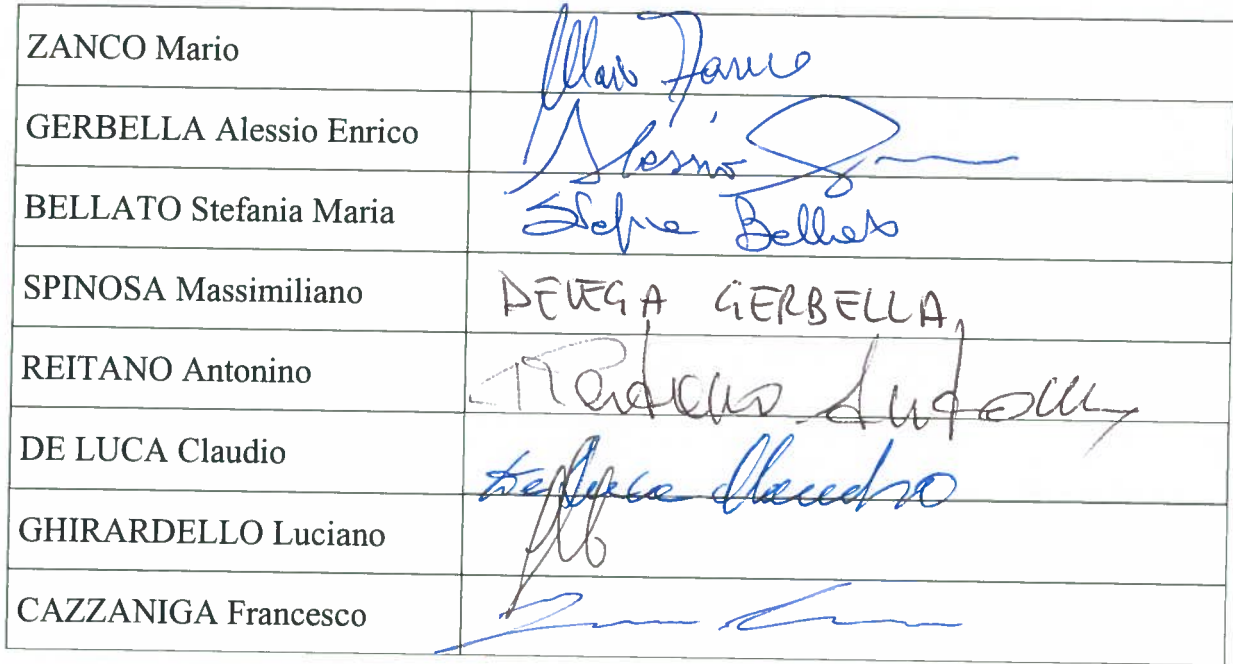 ZANCO Mario Mario Zanco
GERBELLA Alessio Enrico Alessio
BELLATO Stefania Maria Bellato
SPINOSA Massimiliano DELEGA GERBELLA
REITANO Antonino Reitano Antonino
DE LUCA Claudio De Luca Claudio
GHIRARDELLO Luciano
CAZZANIGA Francesco